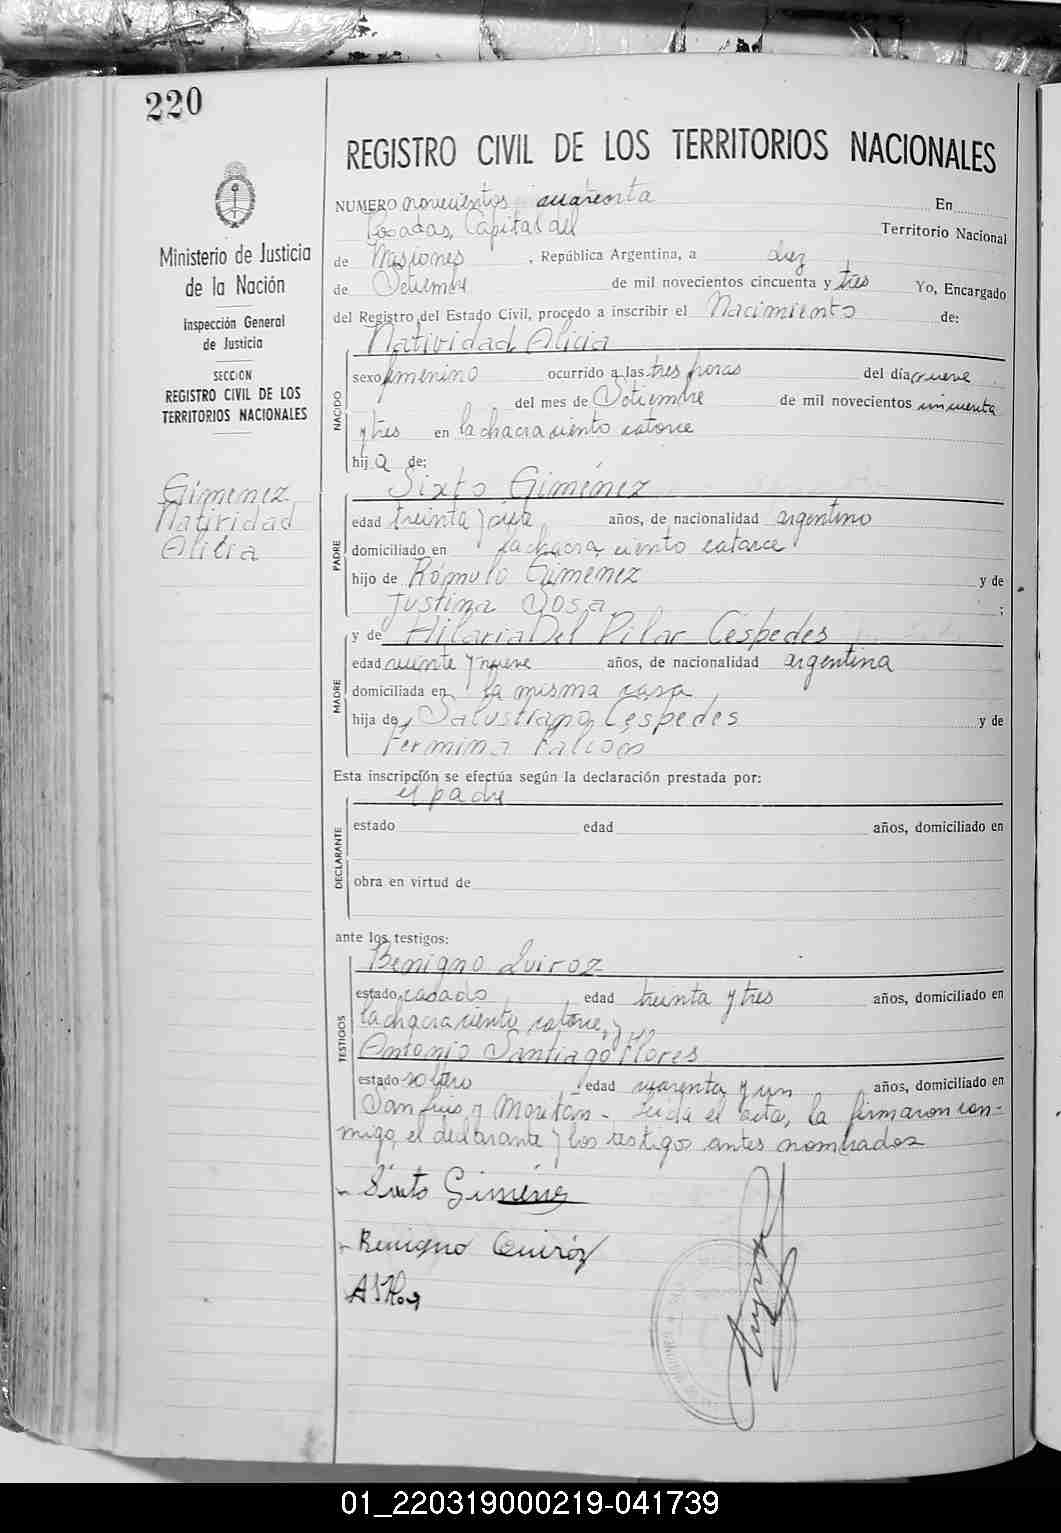 220
REGISTRO CIVIL DE LOS TERRITORIOS NACIONALES
Ministerio de Justicia
de la Nación
Inspección General
de Justicia
SECCION
REGISTRO CIVIL DE LOS
TERRITORIOS NACIONALES
Gimenez
Natividad
Alicia
NUMERO novecientos cuarenta En
Posadas, Capital del Territorio Nacional
de Misiones, República Argentina, a diez
de Setiembre de mil novecientos cincuenta y tres Yo, Encargado
del Registro del Estado Civil, procedo a inscribir el Nacimiento de:
NACIDO
Natividad Alicia
sexo femenino ocurrido a las tres horas del día nueve
del mes de Setiembre de mil novecientos cincuenta
y tres en la chacra ciento catorce
hija de:
PADRE
Sixto Giménez
edad treinta y siete años, de nacionalidad argentino
domiciliado en la chacra ciento catorce
hijo de Rómulo Giménez y de
Justina Sosa ;
MADRE
y de Hilaria Del Pilar Céspedes
edad veinte y nueve años, de nacionalidad argentina
domiciliada en la misma casa,
hija de Salustiano Céspedes y de
Fermina Falcón
Esta inscripción se efectúa según la declaración prestada por:
DECLARANTE
el padre
estado edad años, domiciliado en
obra en virtud de
ante los testigos:
TESTIGOS
Benigno Quiroz
estado casado, edad treinta y tres años, domiciliado en
la chacra ciento catorce, y
Antonio Santiago Flores
estado soltero, edad cuarenta y un años, domiciliado en
San Luis y Moritán - Leída el acta, la firmaron con-
migo, el declarante y los testigos antes nombrados
Sixto Giménez
Benigno Quiróz
01_220319000219-041739